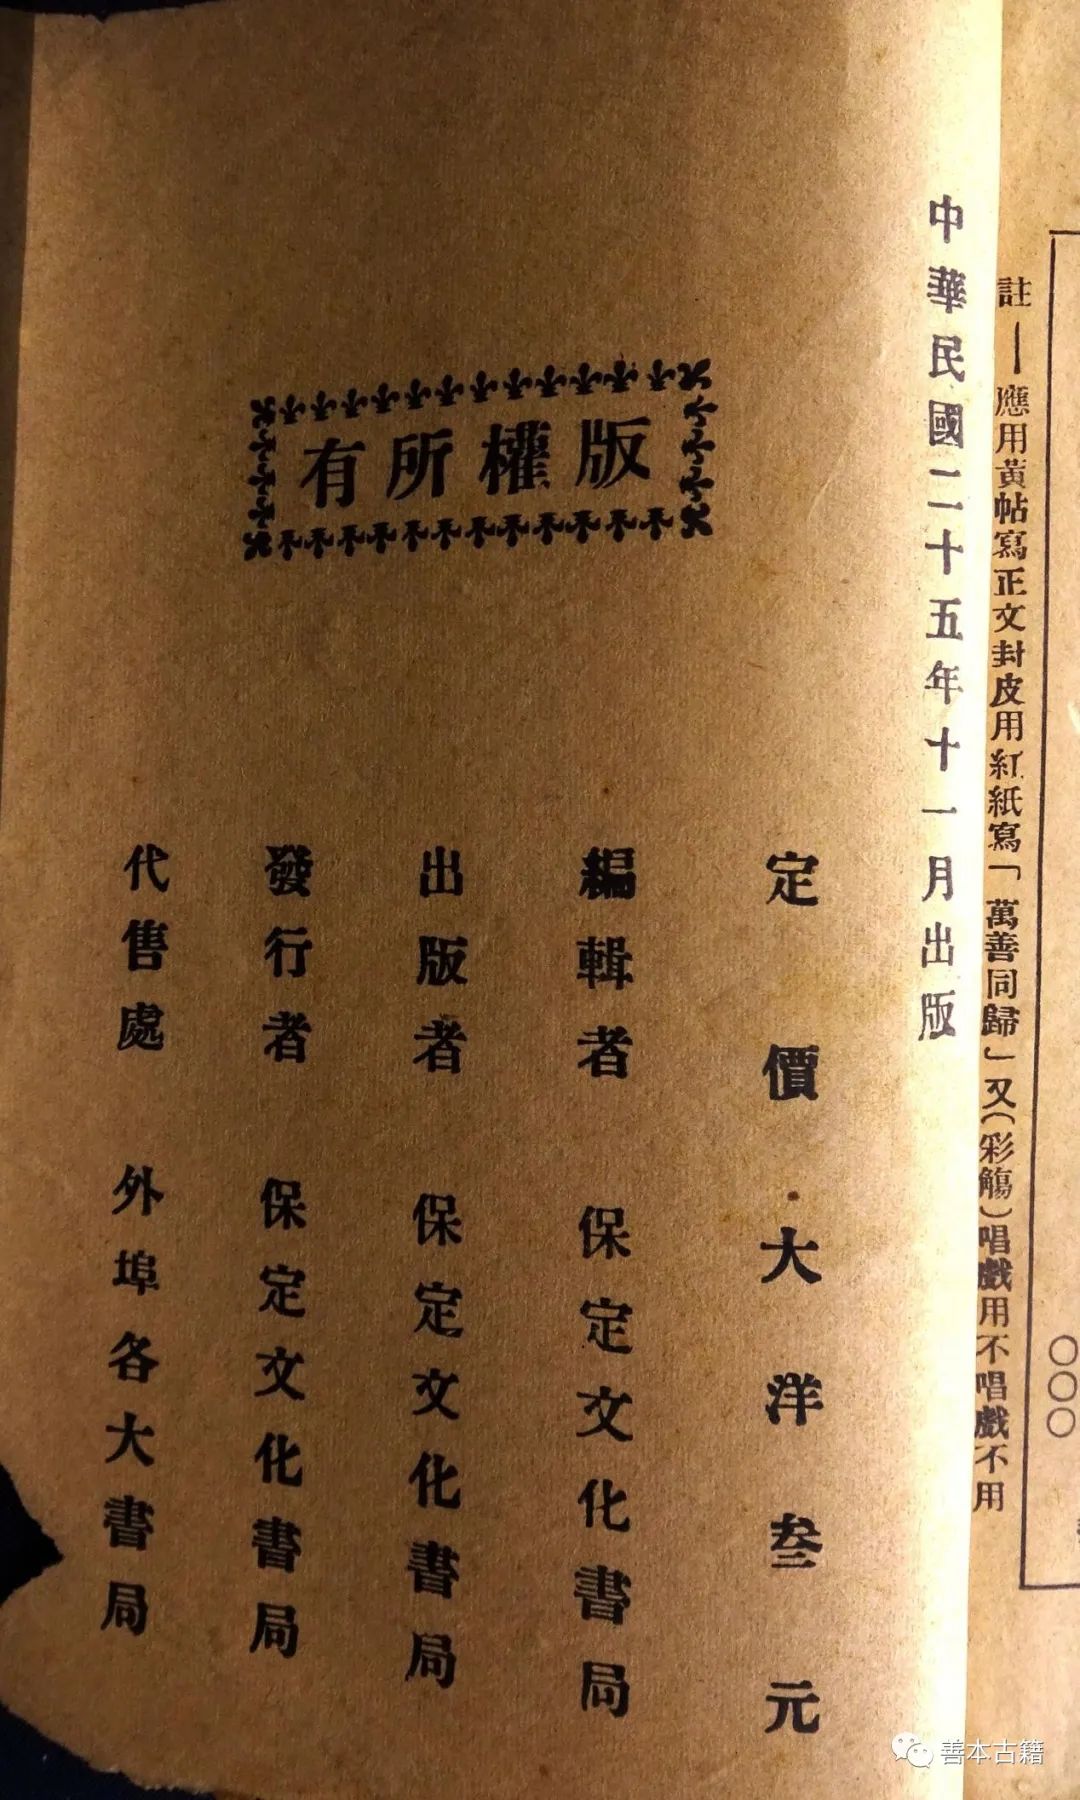 註—應用黃帖寫正文封皮用紅紙寫「萬善同歸」又(彩觴)唱戲用不唱戲不用
〇〇〇
中華民國二十五年十一月出版
版權所有
定價·大洋叁元
編輯者 保定文化書局
出版者 保定文化書局
發行者 保定文化書局
代售處 外埠各大書局
善本古籍